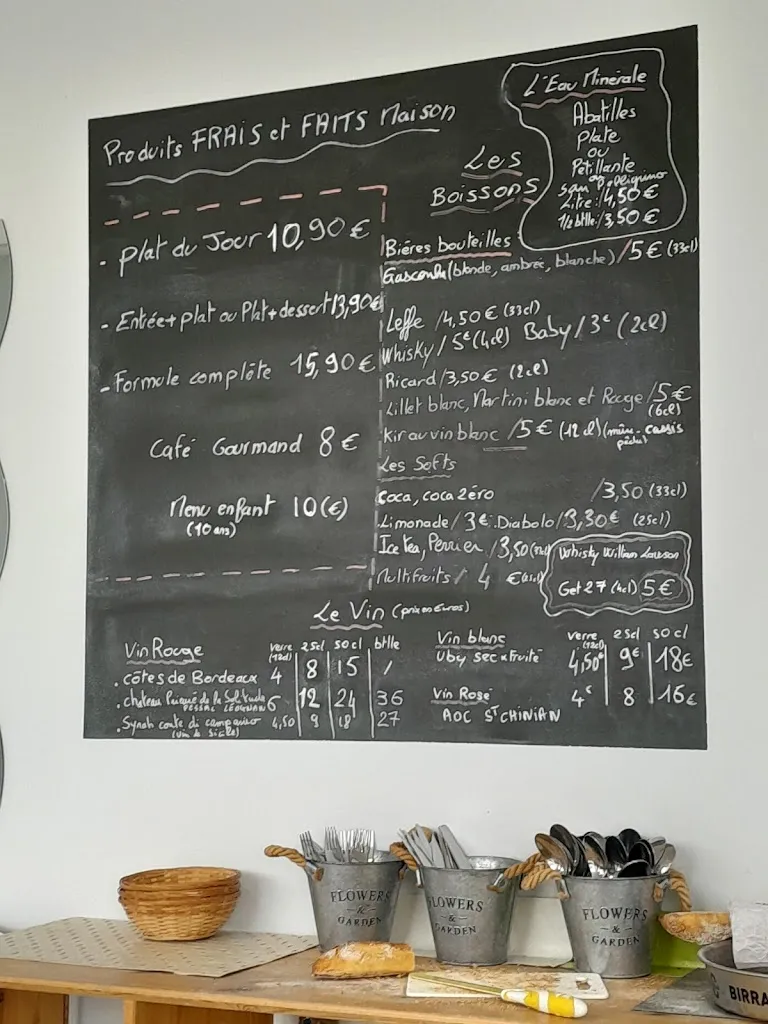 Produits FRAIS et FAITS Maison
- Plat du Jour 10,90 €
- Entrée + plat ou Plat + dessert 13,90€
- Formule complète 15,90 €
Café Gourmand 8 €
Menu enfant 10 (€)
(10 ans)
L'Eau Minérale
Abatilles
Plate
ou
Pétillante
san pellegrino
Litre : / 4,50 €
1/2 btlle : / 3,50 €
Les
Boissons
Bières bouteilles
(blonde, ambrée, blanche) / 5 € (33cl)
Leffe / 4,50 € (33cl)
Whisky / 5€ (4cl) Baby / 3€ (2cl)
Ricard / 3,50 € (2cl)
Lillet blanc, Martini blanc et Rouge / 5 €
(6cl)
Kir au vin blanc / 5 € (12cl) (mûre - cassis
pêche)
Les Softs
Coca, coca zéro / 3,50 (33cl)
Limonade / 3€ . Diabolo / 3,30€ (25cl)
Ice tea, Perrier / 3,50 (33cl)
Multifruits / 4 € (25cl)
Whisky William Lawson
Get 27 (4cl) 5 €
Le Vin (prix en Euros)
Vin Rouge verre 25cl 50cl btlle
(12cl)
. côtes de Bordeaux 4 8 15 /
. chateau de la Solitude 6 12 24 36
PESSAC LEOGNAN
. Syrah conte di campiano 4,50 9 18 27
(vin de sicile)
Vin blanc verre 25cl 50cl
(12cl)
Uby sec + fruité 4,50€ 9€ 18€
Vin Rosé 4€ 8 16€
AOC ST CHINIAN
FLOWERS
&
GARDEN
FLOWERS
&
GARDEN
FLOWERS
&
GARDEN
BIRRA